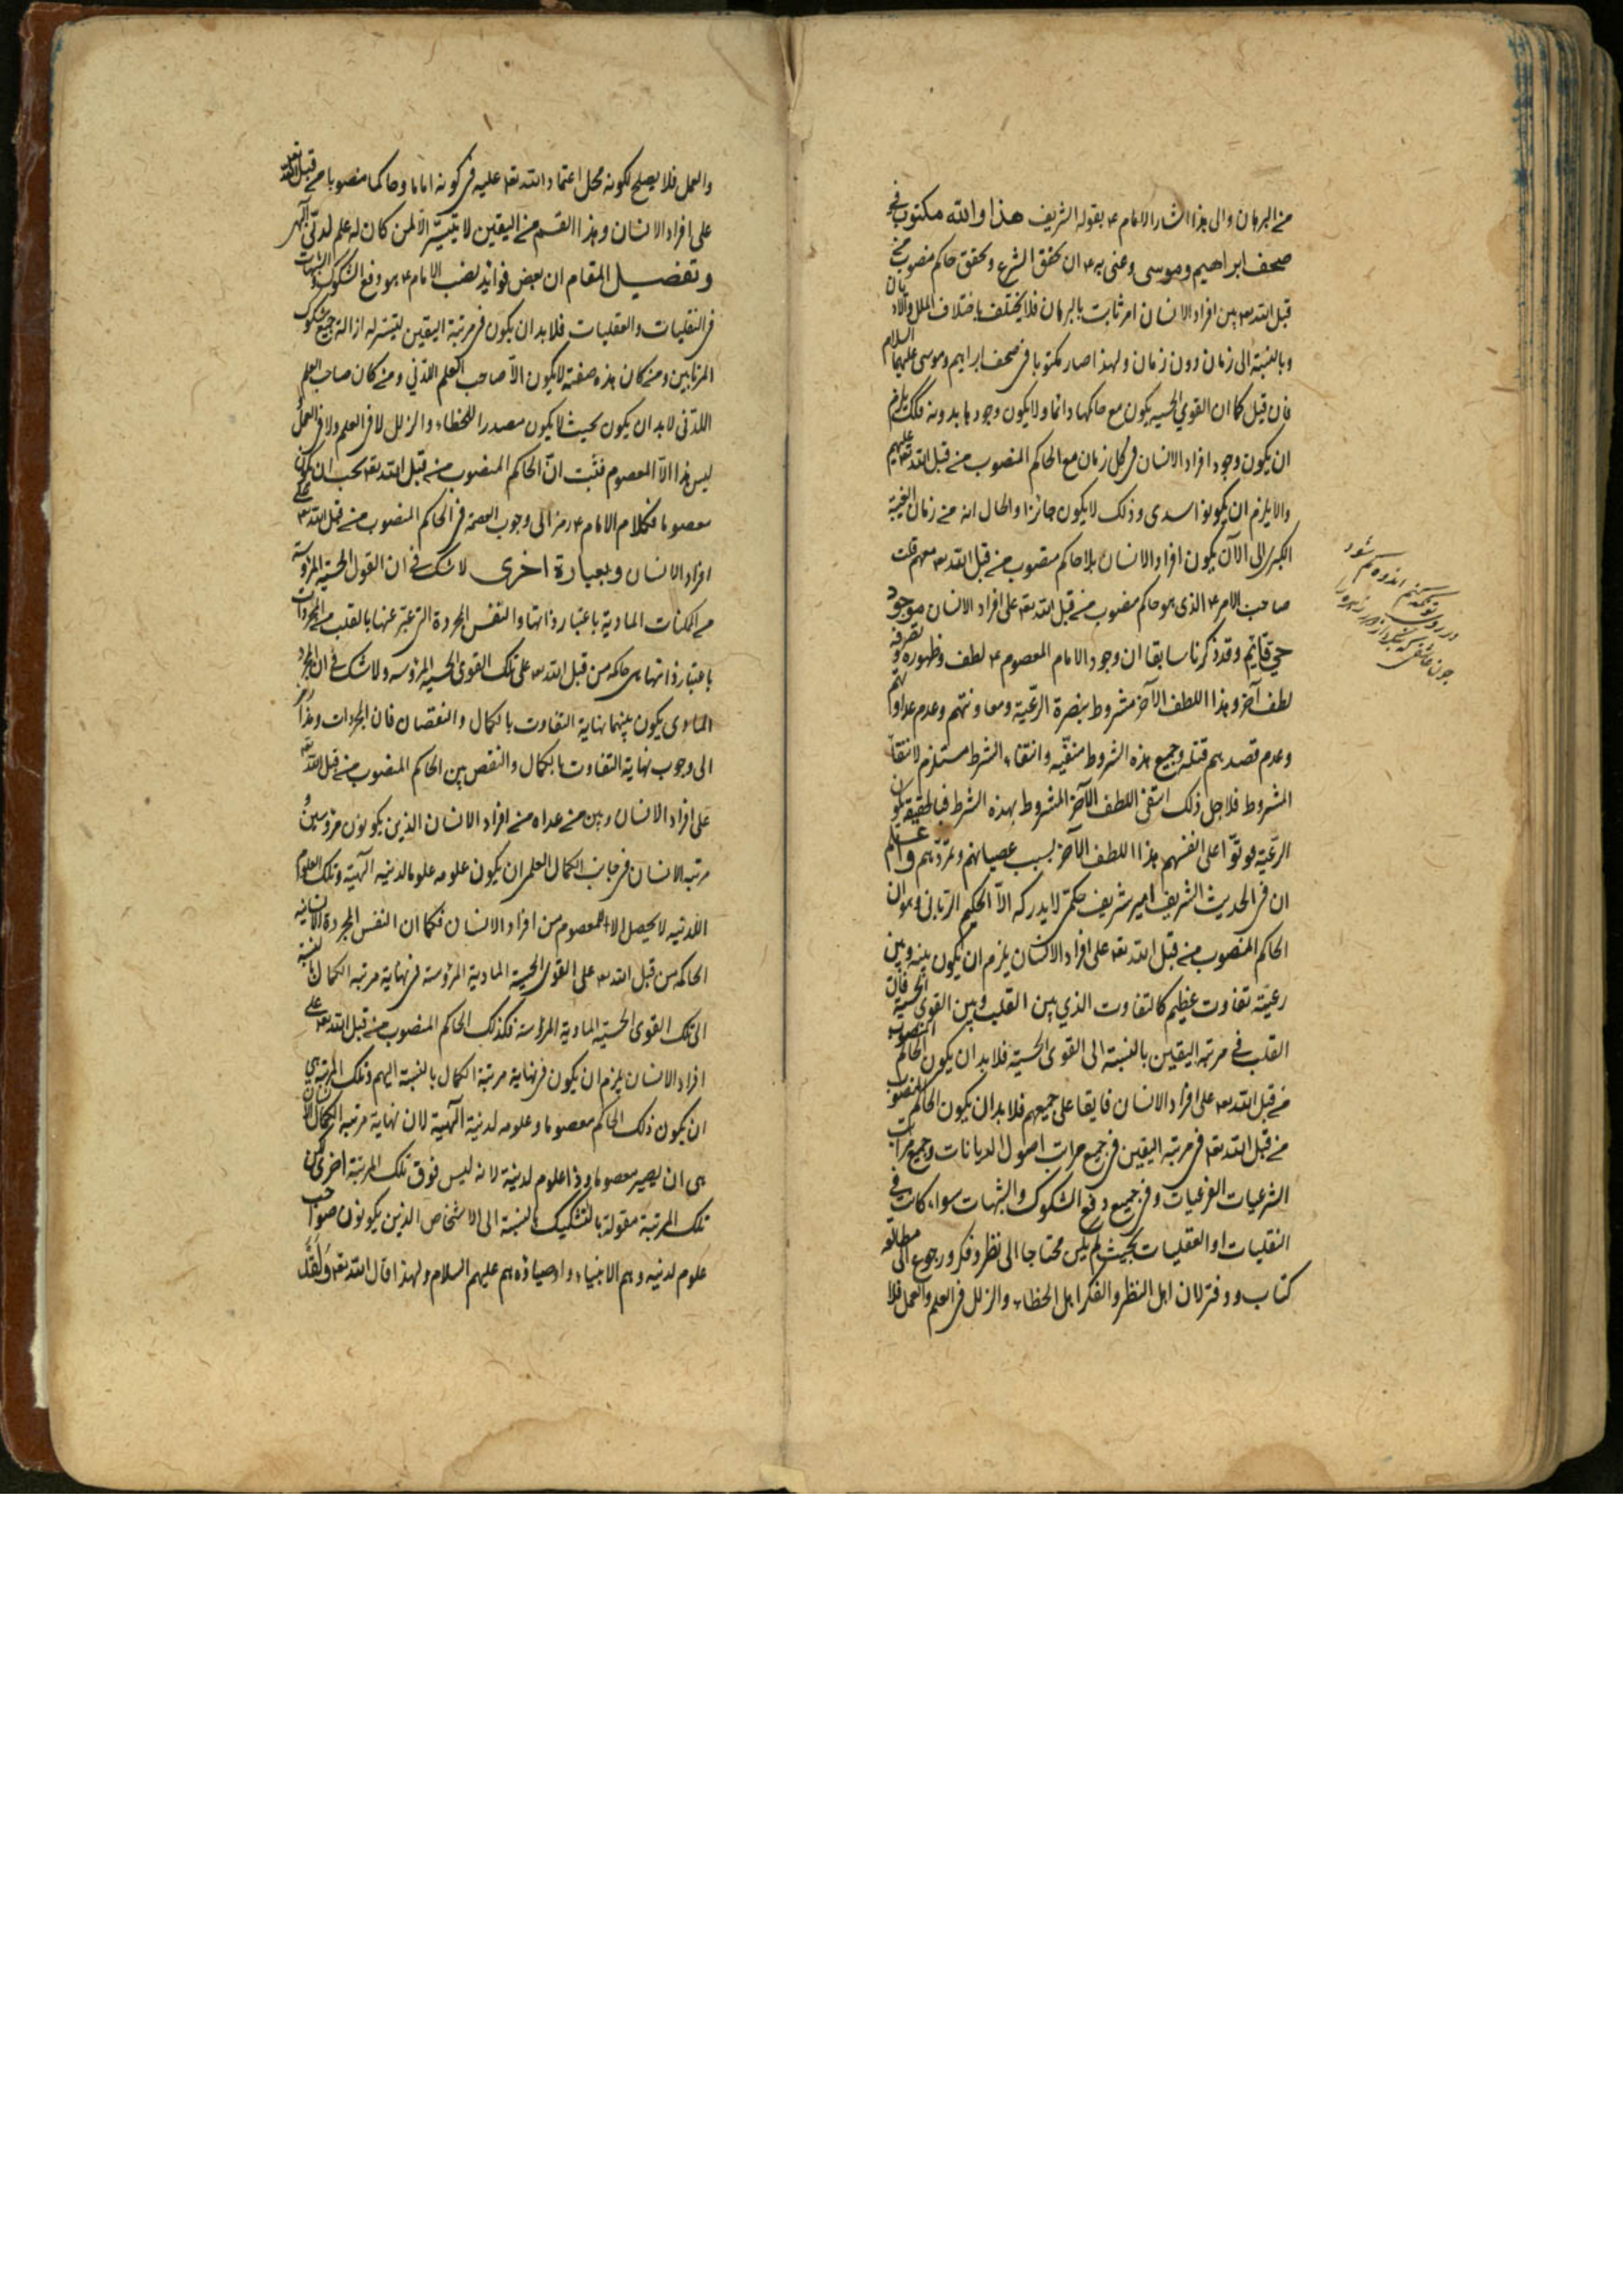 من البرهان والى هذا اشار الامام ع بقوله الشريف هذا والله مكتوب فى
صحف ابراهيم وموسى وعنى به ع ان تحقق الشرع وتحقق حاكم منصوب من
قبل الله تعه بين افراد الانسان امر ثابت بالبرهان فلا يختلف باختلاف الملل والاديان
وبالنسبة الى زمان دون زمان ولهذا صار مكتوبا فى صحف ابراهيم وموسى عليهما السلام
فان قيل كما ان القوى الحسيه يكون مع حاكمها دائما ولا يكون وجودها بدونه فكك يلزم
ان يكون وجود افراد الانسان فى كل زمان مع الحاكم المنصوب من قبل الله تعه عليهم
والا يلزم ان يكونوا سدى وذلك لا يكون جائزا والحال انه من زمان الغيبة
الكبرى الى الآن يكون افراد الانسان بلا حاكم منصوب من قبل الله تعه معهم قلت
صاحب الامر ع الذى هو حاكم منصوب من قبل الله تعه على افراد الانسان موجود
حي قايم وقد ذكرنا سابقا ان وجود الامام المعصوم ع لطف وظهوره وتصرفه
لطف آخر وهذا اللطف الآخر مشروط بنصرة الرعية ومعاونتهم وعدم عداوتهم
وعدم قصدهم قتله وجميع هذه الشروط منفيه وانتفاء الشرط مستلزم لانتفاء
المشروط فلاجل ذلك انتفى اللطف الآخر المشروط بهذه الشرط فبالحقيقة يكون
الرعية فوتوا على انفسهم هذا اللطف الآخر بسبب عصيانهم وتمردهم واعلم
ان فى الحديث الشريف اسرا شريف حكمى لا يدركه الا الحكيم الربانى وهو ان
الحاكم المنصوب من قبل الله تعه على افراد الانسان يلزم ان يكون بينه وبين
رعيته تفاوت عظيم كالتفاوت الذي بين القلب وبين القوى الحسية فان
القلب فى مرتبه اليقين بالنسبة الى القوى الحسيه فلا بد ان يكون الحاكم المنصوب
من قبل الله تعه على افراد الانسان فايقا على جميعهم فلا بد ان يكون الحاكم المنصوب
من قبل الله تعه فى مرتبه اليقين فى جميع مراتب اصول الديانات وجميع مراتب
الشرعيات الفرعيات وفى جميع دفع الشكوك والشبهات سواء كانت فى
النقليات او العقليات بحيث لم يكن محتاجا الى نظر وفكر ورجوع الى مطالعه
كتاب ودفتر لان اهل النظر والفكر اهل الخطاء والزلل فى العلم والعمل فلا
والعمل فلا يصلح لكونه محل اعتماد الله تعه عليه فى كونه اماما وحاكما منصوبا من قبل الله تعه
على افراد الانسان وهذا القسم من اليقين لا يتيسر الا لمن كان له علم لدنى الهى
وتفصيل المقام ان بعض فوائد نصب الامام ع هو دفع الشكوك والشبهات
فى النقليات والعقليات فلا بد ان يكون فى مرتبة اليقين ليتيسر له ازالة جميع شكوك
المرتابين ومن كان هذه صفته لا يكون الا صاحب العلم اللدني ومن كان صاحب العلم
اللدنى لا بد ان يكون بحيث لا يكون مصدرا للخطاء والزلل لا فى العلم ولا فى العمل
ليس هذا الا المعصوم فثبت ان الحاكم المنصوب من قبل الله تعه يجب ان يكون
معصوما فكلام الامام ع رمز الى وجوب العصمة فى الحاكم المنصوب من قبل الله تعه على
افراد الانسان وبعبارة اخرى لا شك فى ان القوى الحسية المرؤسة
من الممكنات المادية باعتبار ذاتها والنفس المجردة التى عبر عنها بالقلب من المجردات
باعتبار ذاتها هى حاكمه من قبل الله تعه على تلك القوى الحسية المرؤسه ولا شك فى ان المجرد
المادى يكون بينهما نهاية التفاوت بالكمال والنقصان فان المجردات وهذا رمز
الى وجوب نهاية التفاوت بالكمال والنقص بين الحاكم المنصوب من قبل الله تعه
على افراد الانسان وبين من عداه من افراد الانسان الذين يكونون مرؤسين و
مرتبه الانسان فى جانب الكمال العلمى ان يكون علومه علوما لدنيه الهيه وتلك العلوم
اللدنيه لا يحصل الا لمعصوم من افراد الانسان فكما ان النفس المجردة الانسانيه
الحاكمه من قبل الله تعه على القوى الحسية المادية المرؤسة فى نهاية مرتبه الكمال بالنسبة
الى تلك القوى الحسيه المادية المرؤسة فكذلك الحاكم المنصوب من قبل الله تعه على
افراد الانسان يلزم ان يكون فى نهاية مرتبة الكمال بالنسبة اليهم وتلك المرتبة هي
ان يكون ذلك الحاكم معصوما وعلومه لدنية الهية لان نهاية مرتبه الكمال الانسان
هى ان يصير معصوما وذا علوم لدنية لانه ليس فوق تلك المرتبة اخرى لكن
تلك المرتبة مقولة بالتشكيك بالنسبة الى الاشخاص الذين يكونون صواحب
علوم لدنيه وهم الانبياء واوصياؤهم عليهم السلام ولهذا قال الله تعه ولقد